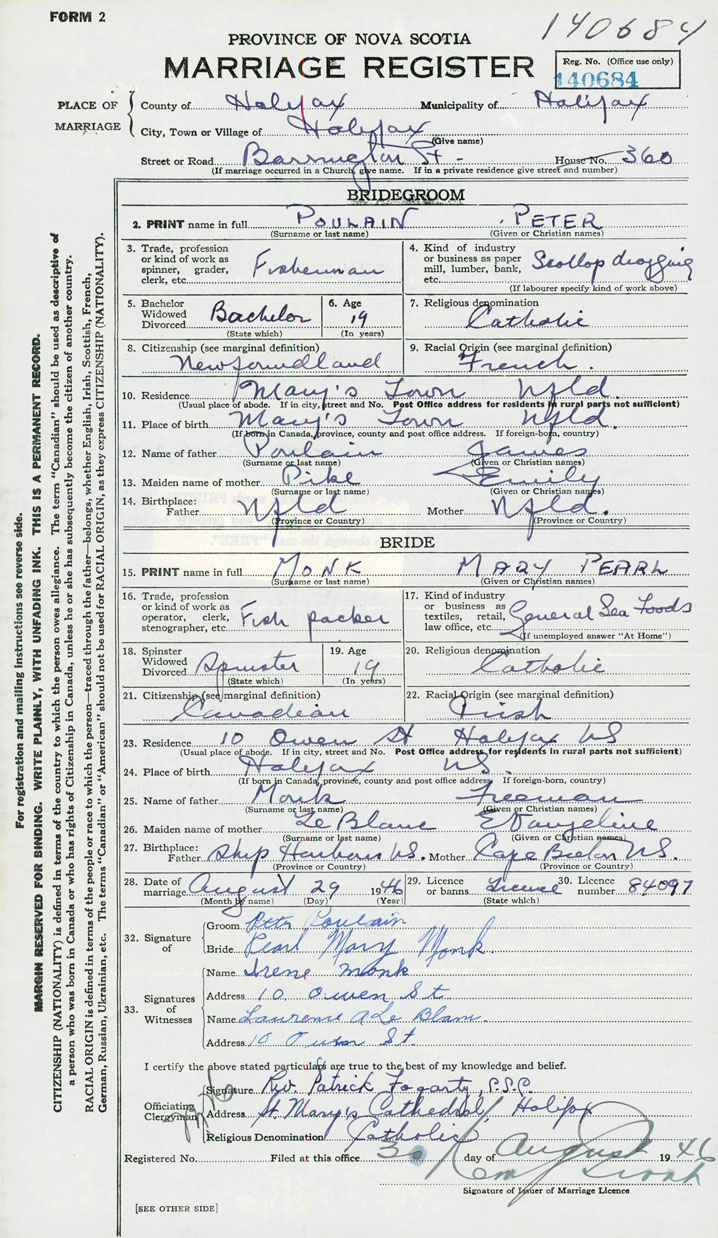 FORM 2
140684
PROVINCE OF NOVA SCOTIA
MARRIAGE REGISTER
Reg. No. (Office use only)
140684
PLACE OF MARRIAGE
County of Halifax Municipality of Halifax
City, Town or Village of Halifax
(Give name)
Street or Road Barrington St - House No. 360
(If marriage occurred in a Church, give name. If in a private residence give street and number)
BRIDEGROOM
2. PRINT name in full POULAIN PETER
(Surname or last name) (Given or Christian names)
3. Trade, profession or kind of work as spinner, grader, clerk, etc. Fisherman
4. Kind of industry or business as paper mill, lumber, bank, etc. Scollop dragging
(If labourer specify kind of work above)
5. Bachelor Widowed Divorced Bachelor (State which)
6. Age 19 (In years)
7. Religious denomination Catholic
8. Citizenship (see marginal definition) Newfoundland
9. Racial Origin (see marginal definition) French
10. Residence Mary's Town Nfld.
(Usual place of abode. If in city, street and No. Post Office address for residents in rural parts not sufficient)
11. Place of birth Mary's Town Nfld.
(If born in Canada, province, county and post office address. If foreign-born, country)
12. Name of father Poulain James
(Surname or last name) (Given or Christian names)
13. Maiden name of mother Pike Emily
(Surname or last name) (Given or Christian names)
14. Birthplace: Father Nfld Mother Nfld.
(Province or Country) (Province or Country)
BRIDE
15. PRINT name in full MONK MARY PEARL
(Surname or last name) (Given or Christian names)
16. Trade, profession or kind of work as operator, clerk, stenographer, etc. Fish packer
17. Kind of industry or business as textiles, retail, law office, etc. General Sea Foods
(If unemployed answer "At Home")
18. Spinster Widowed Divorced Spinster (State which)
19. Age 19 (In years)
20. Religious denomination Catholic
21. Citizenship (see marginal definition) Canadian
22. Racial Origin (see marginal definition) Irish
23. Residence 10 Owen St Halifax NS
(Usual place of abode. If in city, street and No. Post Office address for residents in rural parts not sufficient)
24. Place of birth Halifax NS.
(If born in Canada, province, county and post office address. If foreign-born, country)
25. Name of father Monk Freeman
(Surname or last name) (Given or Christian names)
26. Maiden name of mother Le Blanc Evangeline
(Surname or last name) (Given or Christian names)
27. Birthplace: Father Ship Harbour NS. Mother Cape Breton NS.
(Province or Country) (Province or Country)
28. Date of marriage August 29 1946
(Month by name) (Day) (Year)
29. Licence or banns Licence (State which)
30. Licence number 84097
32. Signature of
Groom Peter Poulain
Bride Pearl Mary Monk
33. Signatures of Witnesses
Name Irene Monk
Address 10 Owen St
Name Laurence A Le Blanc
Address 10 Owen St.
I certify the above stated particulars are true to the best of my knowledge and belief.
Officiating Clergyman
Signature Rev. Patrick Fogarty, P.S.P.
Address St. Mary's Cathedral, Halifax
Religious Denomination Catholic
Registered No. Filed at this office 30 day of August 1946
Signature of Issuer of Marriage Licence
[SEE OTHER SIDE]
For registration and mailing instructions see reverse side.
MARGIN RESERVED FOR BINDING. WRITE PLAINLY, WITH UNFADING INK. THIS IS A PERMANENT RECORD.
CITIZENSHIP (NATIONALITY) is defined in terms of the country to which the person owes allegiance. The term "Canadian" should be used as descriptive of
a person who was born in Canada or who has rights of Citizenship in Canada, unless he or she has subsequently become the citizen of another country.
RACIAL ORIGIN is defined in terms of the people or race to which the person—traced through the father—belongs, whether English, Irish, Scottish, French,
German, Russian, Ukrainian, etc. The terms "Canadian" or "American" should not be used for RACIAL ORIGIN, as they express CITIZENSHIP (NATIONALITY).